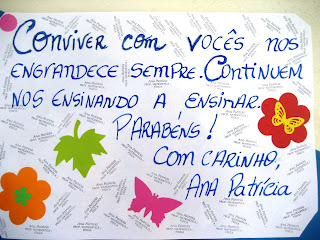 CONVIVER COM VOCÊS NOS
ENGRANDECE SEMPRE. CONTINUEM
NOS ENSINANDO A ENSINAR.
PARABÉNS!
COM CARINHO,
ANA PATRÍCIA